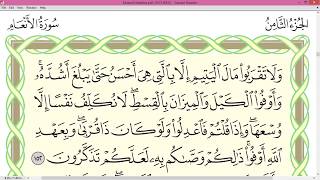 سُورَةُ الأَنْعَامِ
الجُزْءُ الثَّامِنُ
وَلَا تَقْرَبُوا۟ مَالَ ٱلْيَتِيمِ إِلَّا بِٱلَّتِى هِىَ أَحْسَنُ حَتَّىٰ يَبْلُغَ أَشُدَّهُۥ
وَأَوْفُوا۟ ٱلْكَيْلَ وَٱلْمِيزَانَ بِٱلْقِسْطِ لَا نُكَلِّفُ نَفْسًا إِلَّا
وُسْعَهَا وَإِذَا قُلْتُمْ فَٱعْدِلُوا۟ وَلَوْ كَانَ ذَا قُرْبَىٰ وَبِعَهْدِ
ٱللَّهِ أَوْفُوا۟ ذَٰلِكُمْ وَصَّىٰكُم بِهِۦ لَعَلَّكُمْ تَذَكَّرُونَ ١٥٢